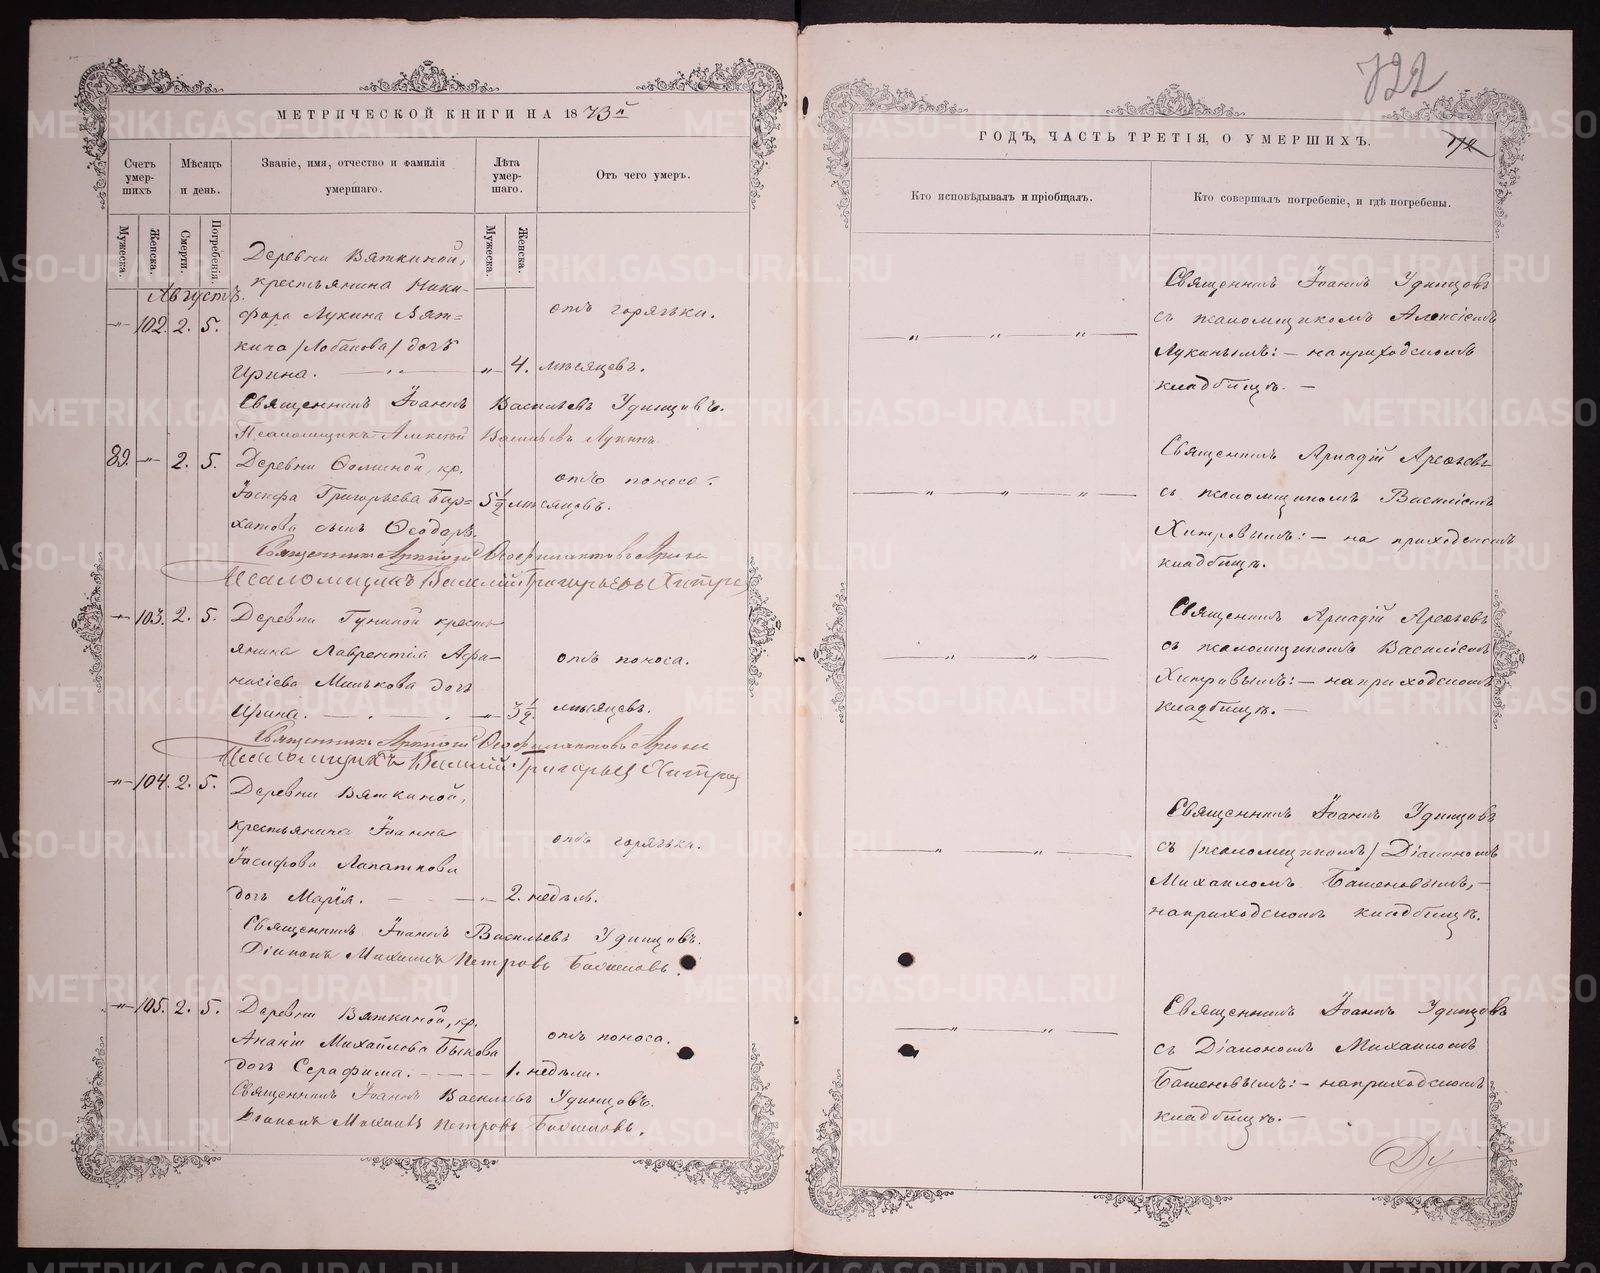 МЕТРИЧЕСКОЙ КНИГИ НА 1873й
Счетъ умер-шихъ
Мѣсяцъ и день.
Званіе, имя, отчество и фамилія умершаго.
Лѣта умер-шаго.
Отъ чего умеръ.
Мужеска.
Женска.
Смерти.
Погребенія.
Мужеска.
Женска.
Августъ.
Деревни Вяткиной,
крестьянина Ники-
-"- 102. 2. 5. фора Лукина Вят= отъ горячки.
кина /Лобанова/ дочь
Ирина. -"- 4. мѣсяцевъ.
Священникъ Іоаннъ Васильевъ Удинцовъ.
Псаломщикъ Алексѣй Васильевъ Лукинъ
89. -"- 2. 5. Деревни Ѳоминой, кр. отъ поноса.
Іосифа Григорьева Бар= 5½ мѣсяцовъ.
хатова сынъ Ѳеодоръ.
Священникъ Аркадій Ѳеофилактовъ
Псаломщикъ Василій Григорьевъ Хитровъ
-"- 103. 2. 5. Деревни Гуниной кресть
янина Лаврентія Аѳа- отъ поноса.
насіева Минькова дочь
Ирина. -"- 3½ мѣсяцевъ.
Священникъ Аркадій Ѳеофилактовъ
Псаломщикъ Василій Григорьевъ Хитровъ
-"- 104. 2. 5. Деревни Вяткиной,
крестьянина Іоанна отъ горячки.
Іосифова Лапаткова
дочь Марія. -"- 2. недѣль.
Священникъ Іоаннъ Васильевъ Удинцовъ.
Діаконъ Михаилъ Петровъ Баженовъ.
-"- 105. 2. 5. Деревни Вяткиной, кр.
Ананіи Михайлова Быкова отъ поноса.
дочь Серафима. 1. недѣли.
Священникъ Іоаннъ Васильевъ Удинцовъ.
Діаконъ Михаилъ Петровъ Баженовъ.
722
ГОДЪ, ЧАСТЬ ТРЕТІЯ, О УМЕРШИХЪ.
Кто исповѣдывалъ и пріобщалъ.
Кто совершалъ погребеніе, и гдѣ погребены.
Священникъ Іоаннъ Удинцовъ
съ псаломщикомъ Алексіемъ
Лукинымъ: - на приходскомъ
кладбищѣ. -
Священникъ Аркадій Арсеньевъ
съ псаломщикомъ Василіемъ
Хитровымъ: - на приходскомъ
кладбищѣ.
Священникъ Аркадій Арсеньевъ
съ псаломщикомъ Василіемъ
Хитровымъ: - на приходскомъ
кладбищѣ. -
Священникъ Іоаннъ Удинцовъ
съ /псаломщикомъ/ Діакономъ
Михаиломъ Баженовымъ, -
на приходскомъ кладбищѣ.
Священникъ Іоаннъ Удинцовъ
съ Діакономъ Михаиломъ
Баженовымъ: - на приходскомъ
кладбищѣ. -
METRIKI.GASO-URAL.RU